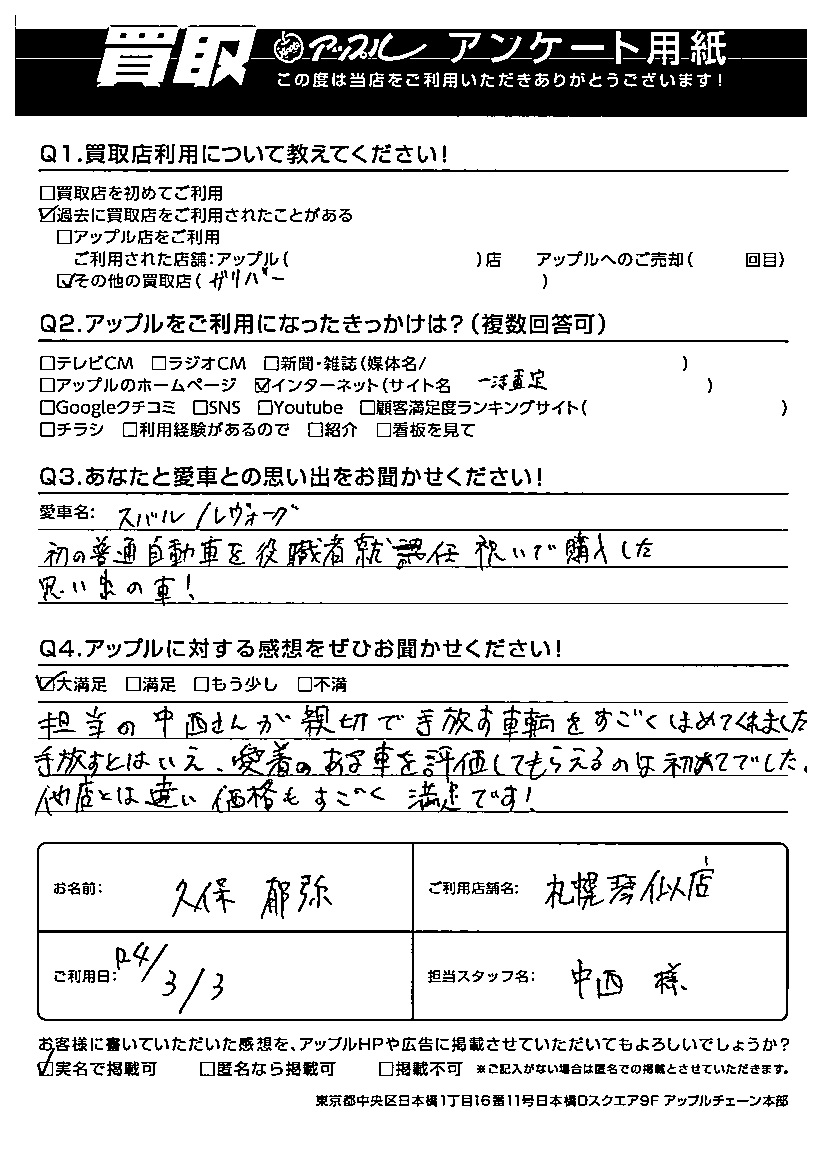 買取 アップル アンケート用紙
この度は当店をご利用いただきありがとうございます！
Q1.買取店利用について教えてください！
□買取店を初めてご利用
☑過去に買取店をご利用されたことがある
□アップル店をご利用
ご利用された店舗：アップル（　　）店　アップルへのご売却（　　回目）
☑その他の買取店（ガリバー　　）
Q2.アップルをご利用になったきっかけは？（複数回答可）
□テレビCM □ラジオCM □新聞・雑誌（媒体名/　　）
□アップルのホームページ ☑インターネット（サイト名 一活査定　　）
□Googleクチコミ □SNS □Youtube □顧客満足度ランキングサイト（　　）
□チラシ □利用経験があるので □紹介 □看板を見て
Q3.あなたと愛車との思い出をお聞かせください！
愛車名： スバル/レヴォーグ
初の普通自動車を役職者就任祝いで購入した
思い出の車！
Q4.アップルに対する感想をぜひお聞かせください！
☑大満足 □満足 □もう少し □不満
担当の中西さんが親切で手放す車輌をすごくほめてくれました
手放すとはいえ、愛着のある車を評価してもらえるのは初めてでした、
他店とは違い価格もすごく満足です！
お名前： 久保 郁弥
ご利用店舗名： 札幌琴似店
ご利用日： R4/3/3
担当スタッフ名： 中西 様
お客様に書いていただいた感想を、アップルHPや広告に掲載させていただいてもよろしいでしょうか？
☑実名で掲載可 □匿名なら掲載可 □掲載不可 ※ご記入がない場合は匿名での掲載とさせていただきます。
東京都中央区日本橋1丁目16番11号日本橋Dスクエア9F アップルチェーン本部